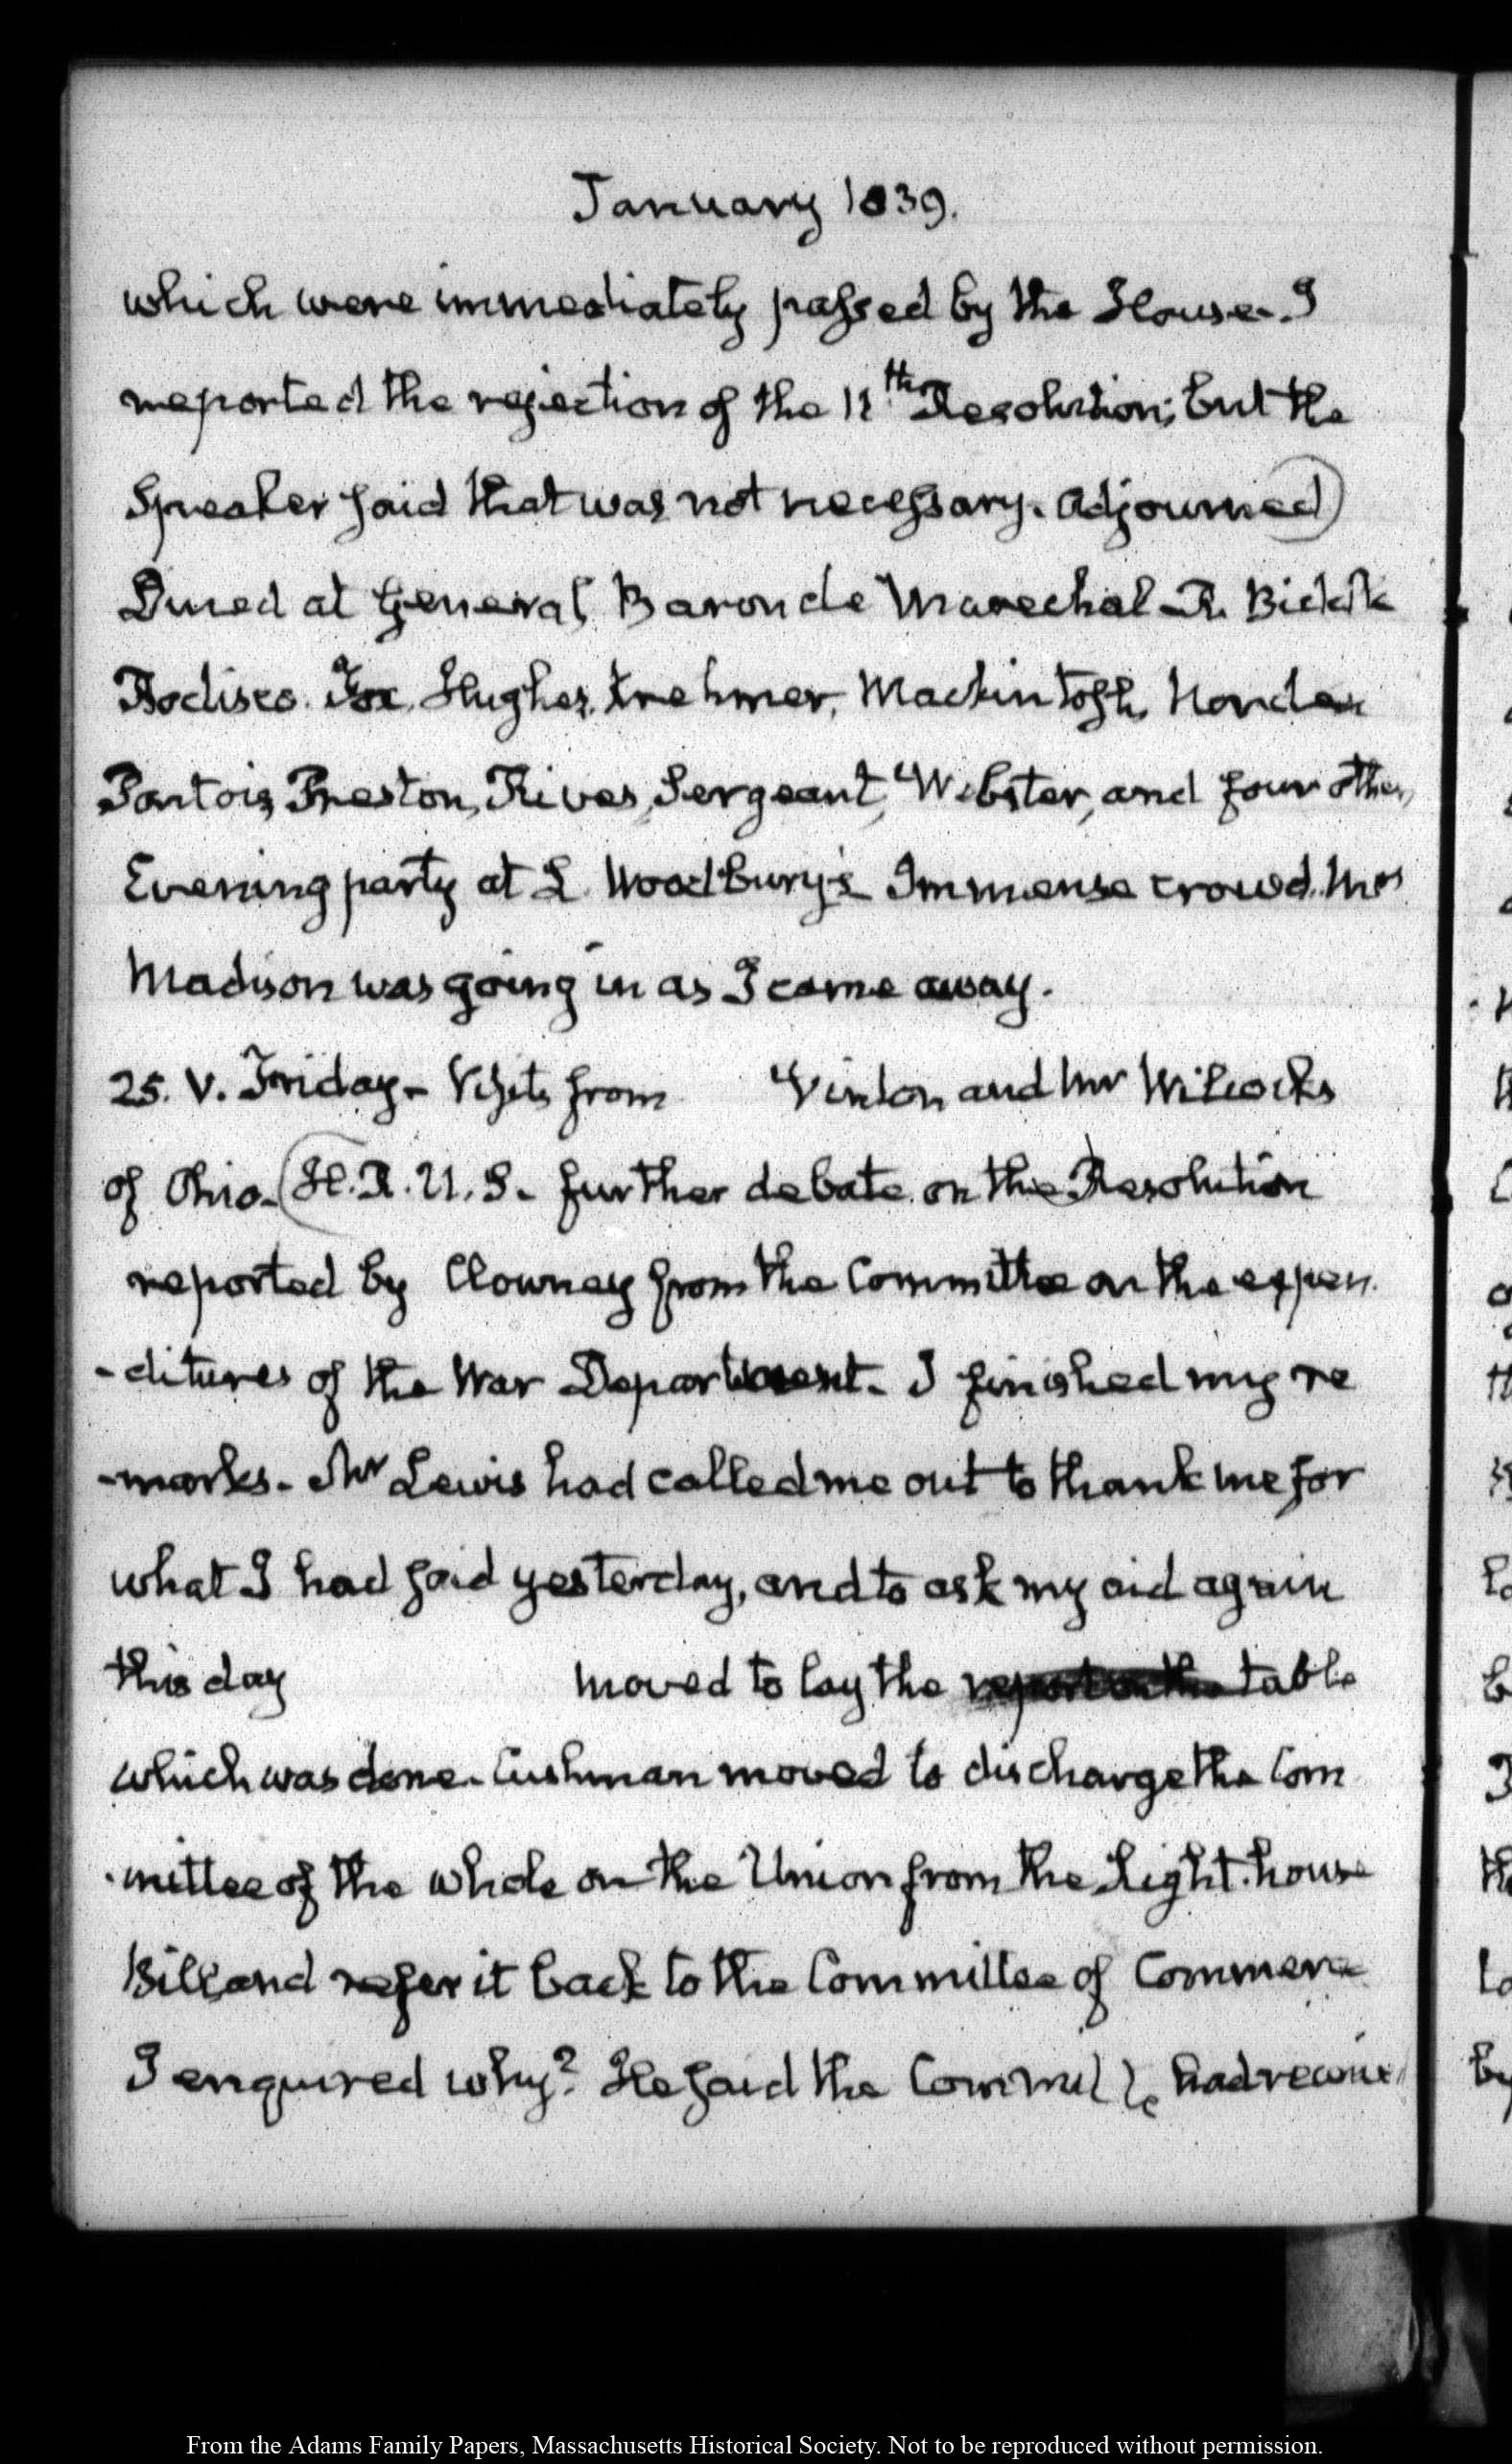 January 1839.
which were immediately passed by the House. I
reported the rejection of the 11th Resolution; but the
Speaker said that was not necessary. Adjourned)
Dined at General Baron de Marechal R.
Bodisco. Fox, Hughes, Krehmer, Mackintosh,
Pontois, Preston, Rives, Sergeant, Webster, and four others
Evening party at L. Woodbury's Immense crowd. Mrs
Madison was going in as I came away.
25. V. Friday- Visits from Vinton and Mr Wilcocks
of Ohio- (H.R.U.S. further debate on the Resolution
reported by Clowney from the Committee on the expen
-ditures of the War Department. I finished my re
-marks. Mr Lewis had called me out to thank me for
what I had said yesterday, and to ask my aid again
this day moved to lay the report on the table
which was done. Cushman moved to discharge the Com
-mittee of the whole on the Union from the Light-house
Bill and refer it back to the Committee of Commerce
I enquired why? He said the Committee had receive
From the Adams Family Papers, Massachusetts Historical Society. Not to be reproduced without permission.